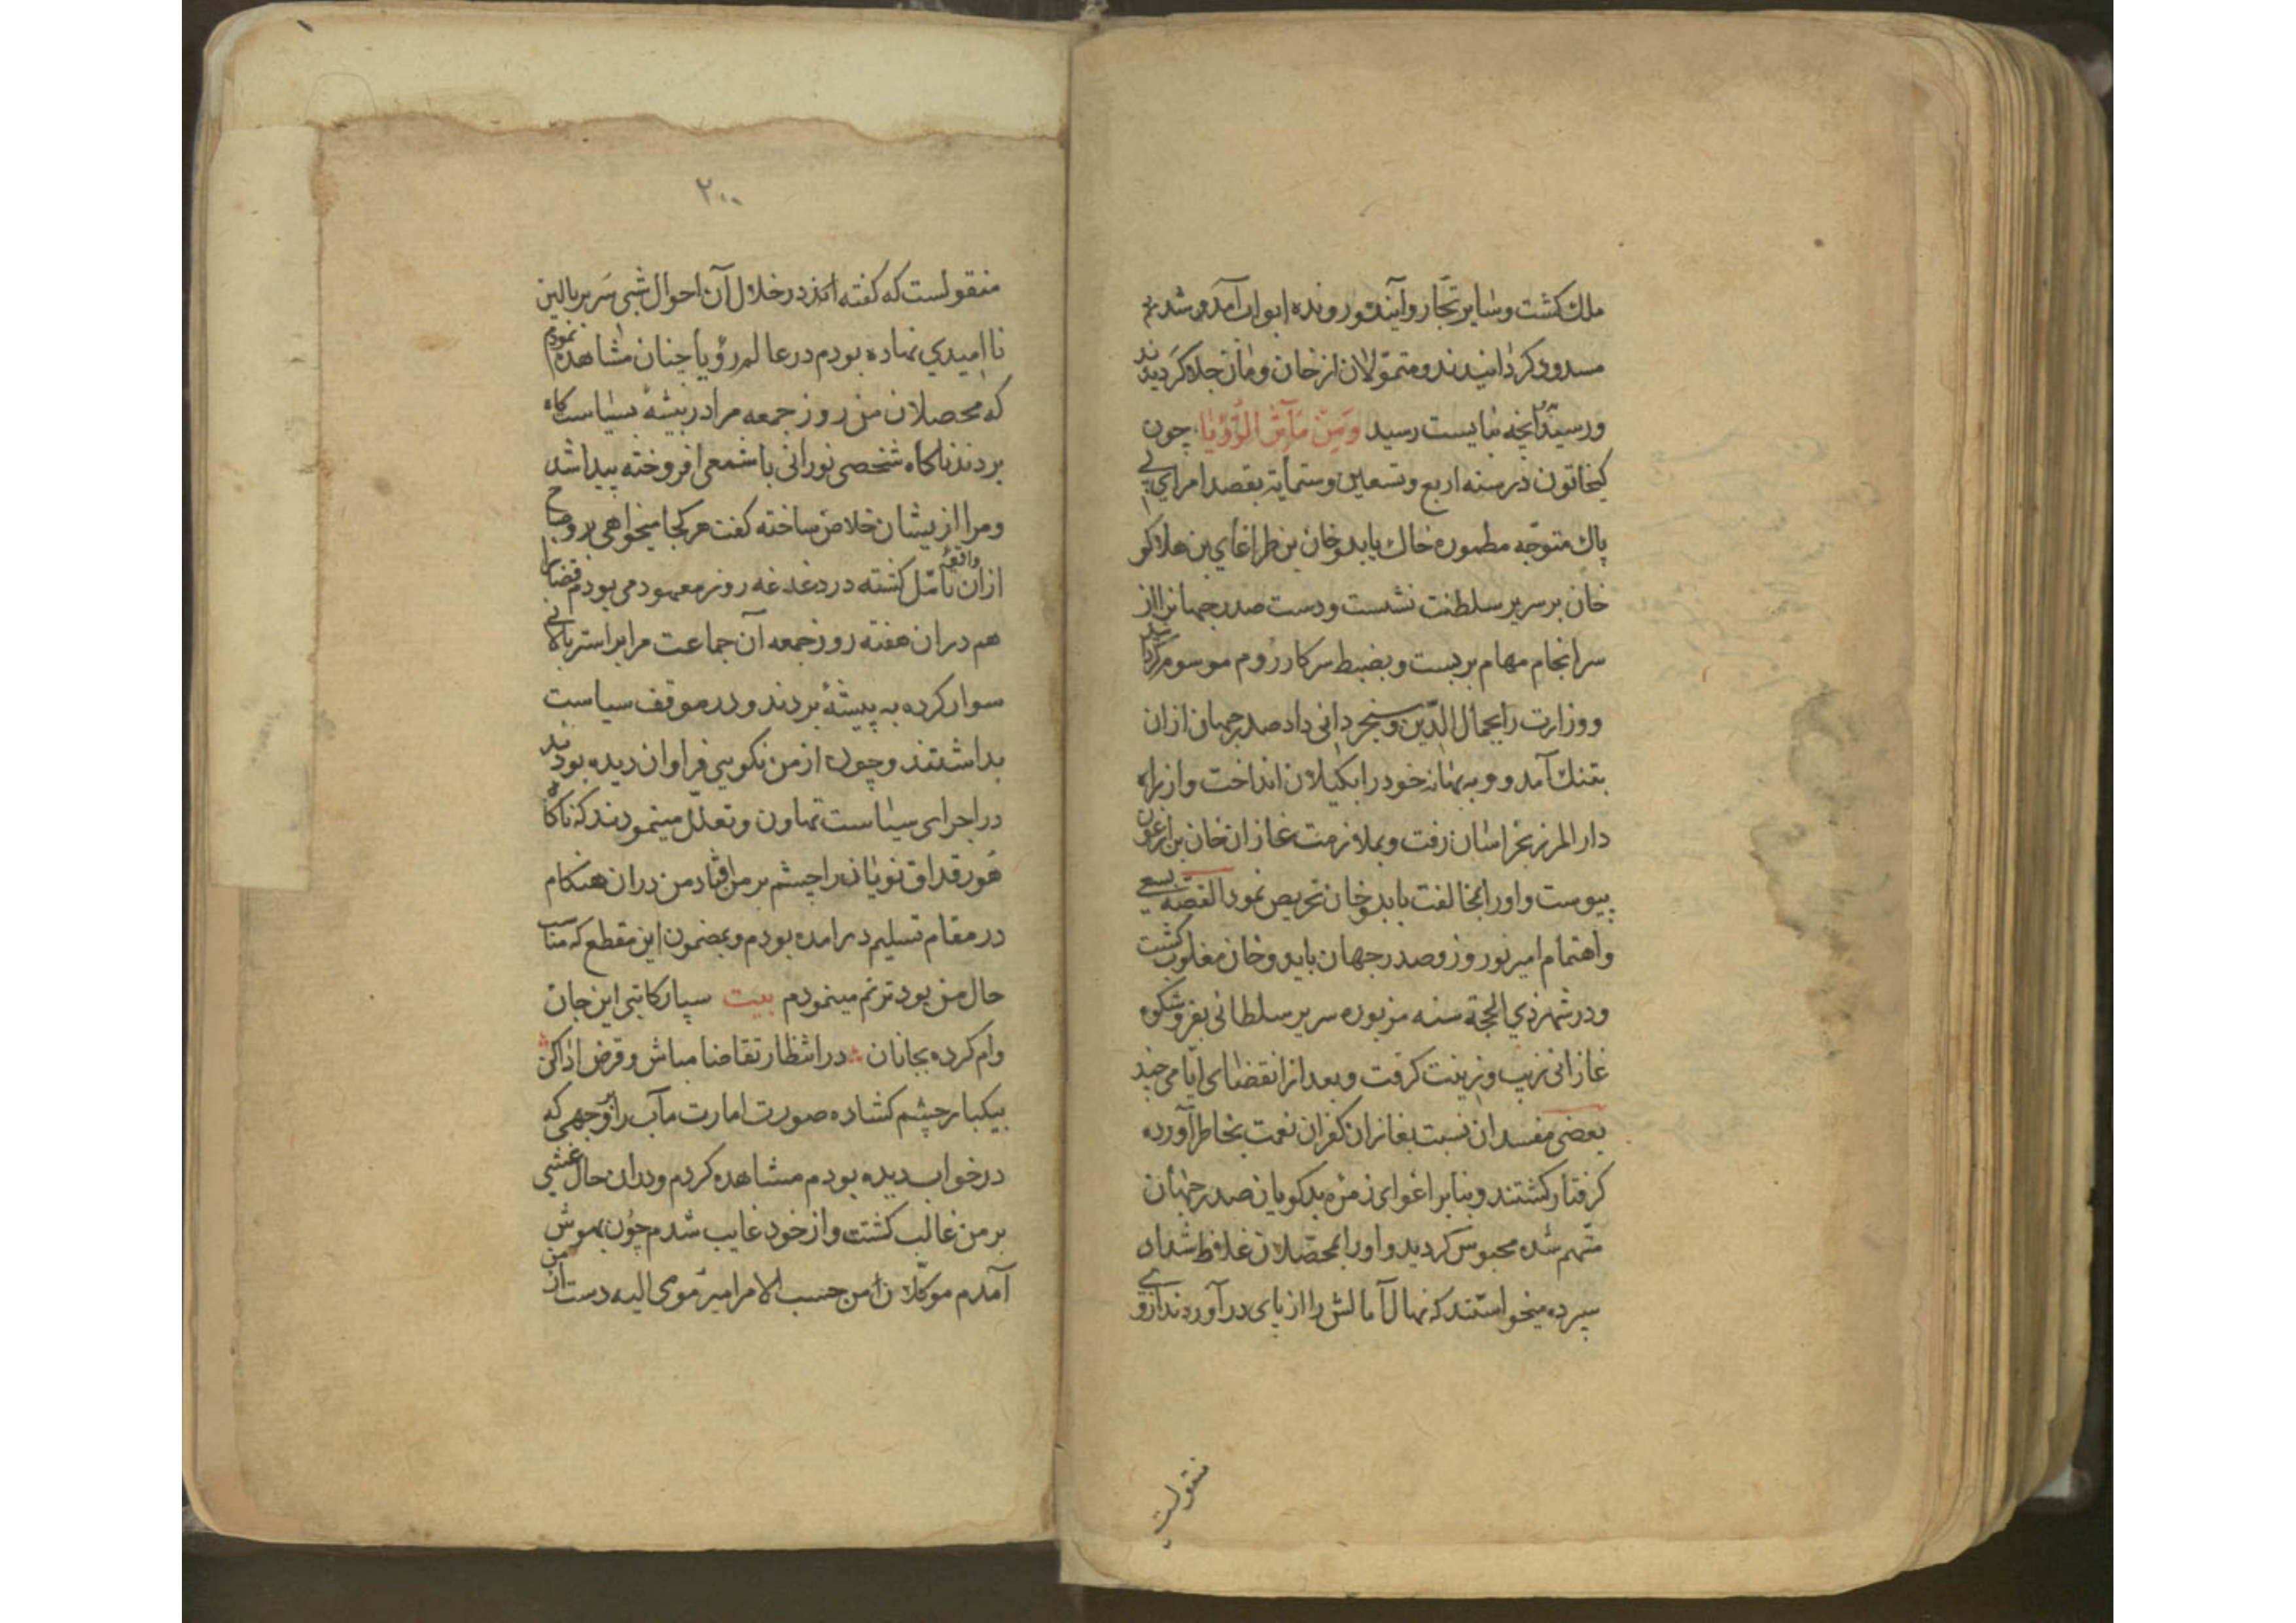 ملك كشت وسایر تجّار وآینده ورونده ابواب آمد و شد
مسدود كردانیدند ومتموّلان از خان ومان جلا كردیدند
ورسید آنچه نبایست رسید ومن مآثر الرّؤیا چون
كیخاتون در سنه اربع وتسعین وستمایة بقصد امرای بی
باك متوجّه مطموره خاك بایدوخان بن طراغای بن هلاكو
خان بر سریر سلطنت نشست ودست صدر جهانرا از
سرانجام مهام بربست وبضبط سركار روم موسوم
ووزارت را بجمال الدّین دستجردانی داد صدر جهان ازان
بتنك آمد و به بهانه خود را بكیلان انداخت واز راه
دار المرز بخراسان رفت وبملازمت غازان خان بن ارغون
پیوست واورا بمخالفت بایدوخان تحریص نمود القصّه بسعی
واهتمام امیر نوروز وصدر جهان بایدوخان مغلوب كشت
ودر شهر ذی الحجة سنه مزبوره سریر سلطانی بفرّ وشكوه
غازانی زیب وزینت كرفت وبعد از انقضای ایّامی چند
بعضی مفسدان نسبت بغازان كفران نعمت بخاطر آورده
كرفتار كشتند وبنابر اغوای زمره بدكویان صدر جهان
متّهم شده محبوس كردید واورا بمحصّلان غلاظ شداد
سپرده میخواستند كه نهال آمالش را از پای در آورند ازوی
منقولست
۲۰۰
منقولست كه كفته اند در خلال آن احوال شبی سر بر بالین
ناامیدی نهاده بودم در عالم رؤیا چنان مشاهده نمودم
كه محصلان من روز جمعه مرا در بیشه بسیاست كاه
بردند ناكاه شخصی نورانی با شمعی افروخته پیدا شد
ومرا از یشان خلاص ساخته كفت هر كجا میخواهی برو صباح
ازان واقعه متأمّل كشته در دغدغه روز معهود می بودم قضارا
هم دران هفته روز جمعه آن جماعت مرا بر استر پالانی
سوار كرده به پیشه بردند ودر موقف سیاست
بداشتند وچون از من نكویی فراوان دیده بودند
در اجرای سیاست تهاون وتعلّل مینمودند كه ناكاه
هورقداق نویان را چشم بر من افتاد من دران هنكام
در مقام تسلیم در امده بودم وبمضمون این مقطع كه مناسب
حال من بود ترنم مینمودم بیت سپار كاتبی این جان
وام كرده بجانان در انتظار تقاضا مباش وقرض ادا كن
بیكبار چشم كشاده صورت امارت مآب را بر وجهی كه
در خواب دیده بودم مشاهده كردم ودران حال غشی
بر من غالب كشت واز خود غایب شدم چون بهوش
آمدم موكّلان من حسب الامر امیر مومی الیه دست از من